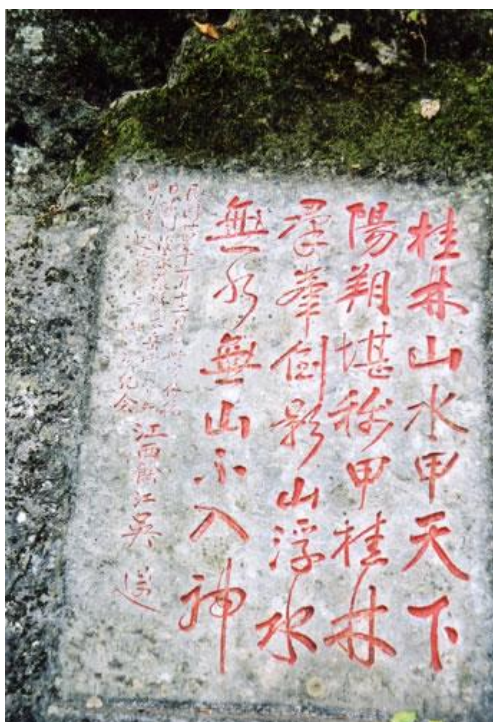 桂林山水甲天下
陽朔堪稱甲桂林
羣峯倒影山浮水
無水無山不入神
紀念 江西餘江吳邁